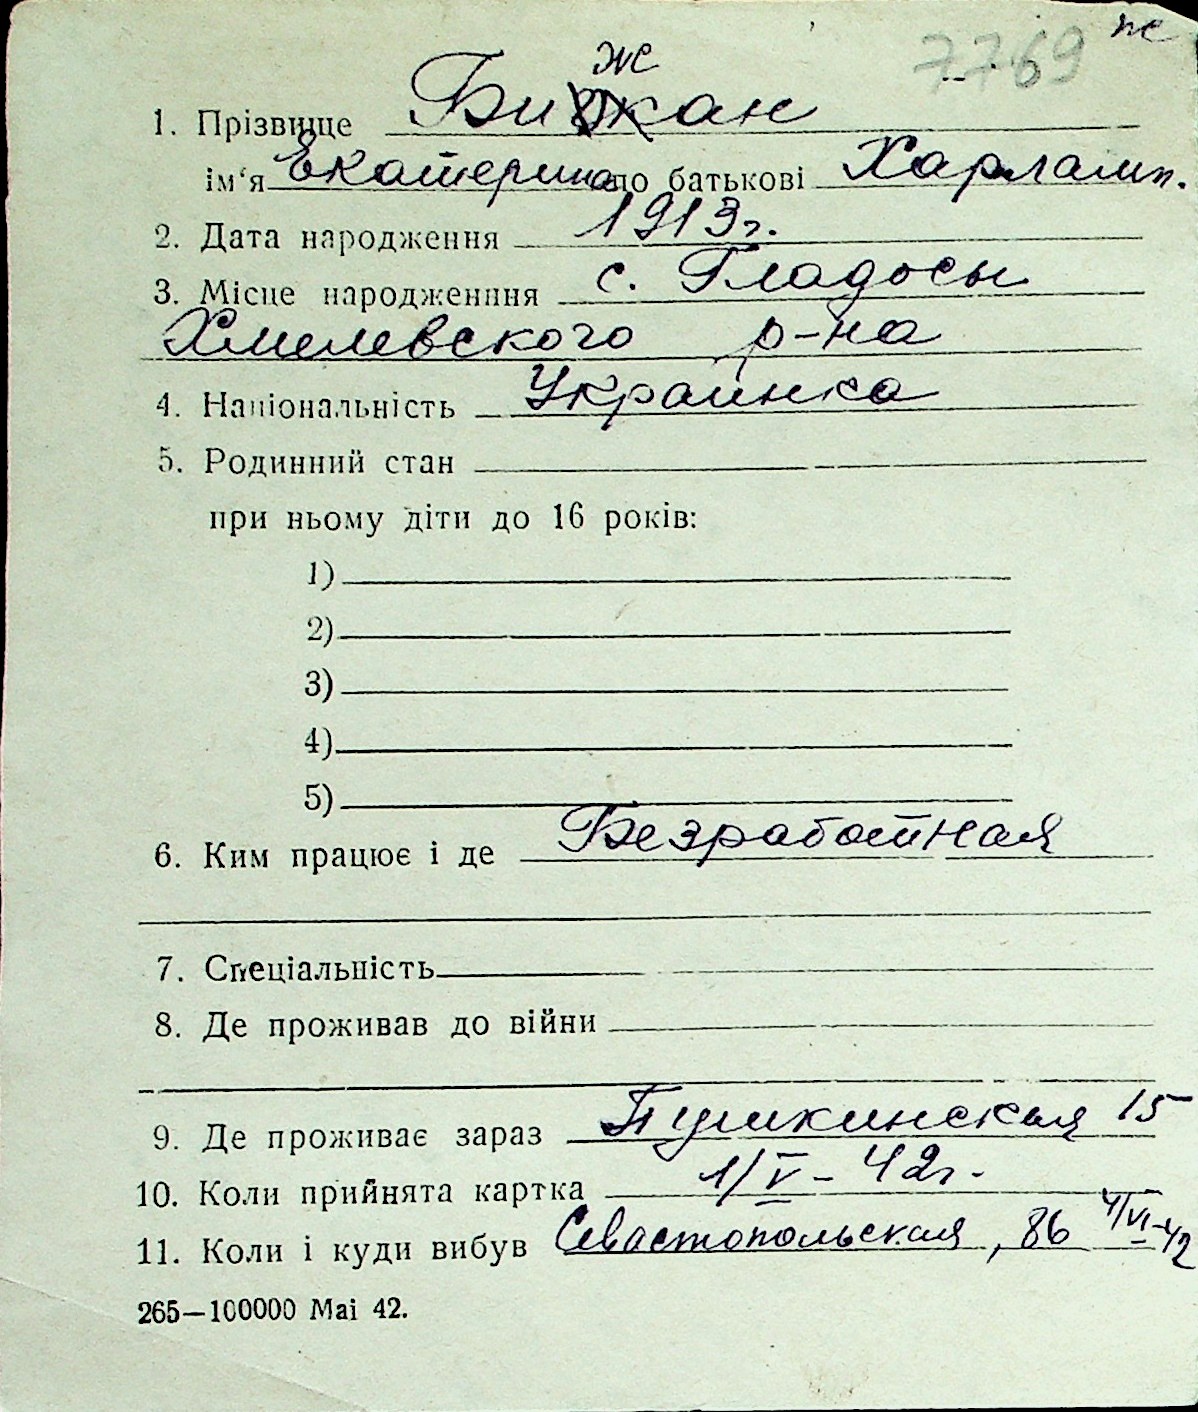 7769 же
же
1. Прізвище Бижан
ім'я Екатерина по батькові Харламп.
2. Дата народження 1913г.
3. Місце народженння с. Гладосы
Хмелевского р-на
4. Національність Украинка
5. Родинний стан
при ньому діти до 16 років:
1)
2)
3)
4)
5)
6. Ким працює і де Безработная
7. Спеціальність
8. Де проживав до війни
9. Де проживає зараз Пушкинская 15
10. Коли прийнята картка 1/V – 42г.
11. Коли і куди вибув Севастопольская, 86 4/VI–42
265—100000 Mai 42.